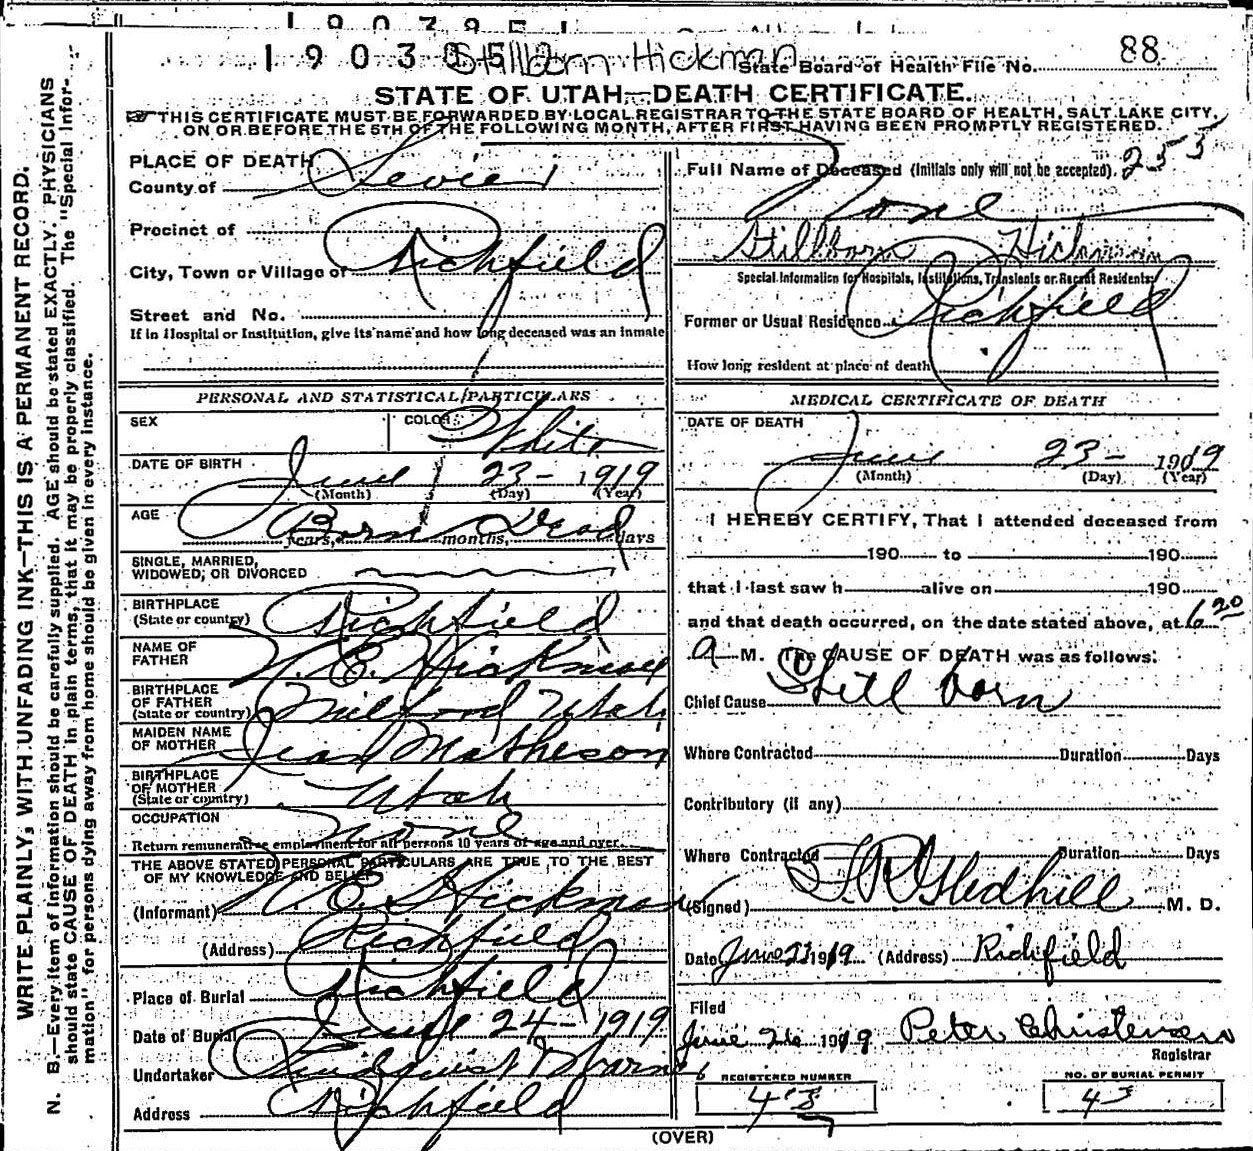 Stillborn Hickman
State Board of Health File No. 88
STATE OF UTAH—DEATH CERTIFICATE.
THIS CERTIFICATE MUST BE FORWARDED BY LOCAL REGISTRAR TO THE STATE BOARD OF HEALTH, SALT LAKE CITY,
ON OR BEFORE THE 5TH OF THE FOLLOWING MONTH, AFTER FIRST HAVING BEEN PROMPTLY REGISTERED.
WRITE PLAINLY, WITH UNFADING INK—THIS IS A PERMANENT RECORD.
N. B.—Every item of information should be carefully supplied. AGE should be stated EXACTLY. PHYSICIANS
should state CAUSE OF DEATH in plain terms, that it may be properly classified. The "Special Infor-
mation" for persons dying away from home should be given in every instance.
PLACE OF DEATH
County of Sevier
Precinct of
City, Town or Village of Richfield
Street and No.
If in Hospital or Institution, give its name and how long deceased was an inmate
PERSONAL AND STATISTICAL PARTICULARS
SEX COLOR White
DATE OF BIRTH June 23- 1919
(Month) (Day) (Year)
AGE Born Dead
years, months, days
SINGLE, MARRIED,
WIDOWED, OR DIVORCED
BIRTHPLACE
(State or country) Richfield
NAME OF
FATHER E. Hickman
BIRTHPLACE
OF FATHER
(State or country) Milford Utah
MAIDEN NAME
OF MOTHER Jean Matheson
BIRTHPLACE
OF MOTHER
(State or country) Utah
OCCUPATION None
Return remunerative employment for all persons 10 years of age and over.
THE ABOVE STATED PERSONAL PARTICULARS ARE TRUE TO THE BEST
OF MY KNOWLEDGE AND BELIEF
(Informant) E. Hickman
(Address) Richfield
Place of Burial Richfield
Date of Burial June 24- 1919
Undertaker
Address Richfield
Full Name of Deceased (Initials only will not be accepted). 255
None
Stillborn Hickman
Special Information for Hospitals, Institutions, Transients or Recent Residents
Former or Usual Residence Richfield
How long resident at place of death
MEDICAL CERTIFICATE OF DEATH
DATE OF DEATH
June 23- 1919
(Month) (Day) (Year)
I HEREBY CERTIFY, That I attended deceased from
190 to 190
that I last saw h alive on 190
and that death occurred, on the date stated above, at 6 20
A M. The CAUSE OF DEATH was as follows:
Chief Cause Still born
Where Contracted Duration Days
Contributory (if any)
Where Contracted Duration Days
(Signed) Gledhill M. D.
Date June 23 1919 (Address) Richfield
Filed
June 26 1919 Peter Christensen
Registrar
REGISTERED NUMBER
NO. OF BURIAL PERMIT
(OVER)